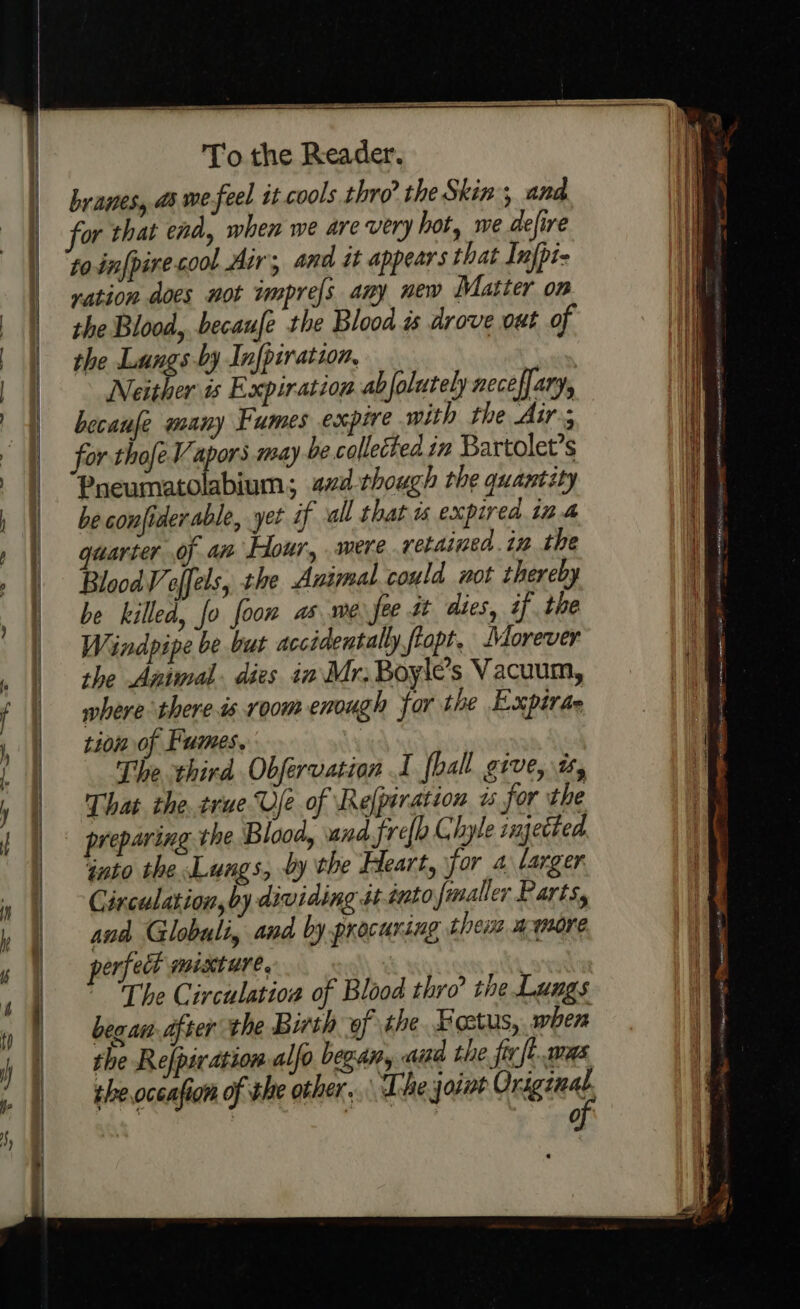 To the Reader.
branes, as we feel it cools thro' the Skin; and
for that end, when we are very hot, we deſire
to inſpire cool Air; and it appears that Inſpi-
ration does not impreſs any new Matter on
the Blood, becauſe the Blood is drove out of
the Lungs by Inſpiration.
Neither is Expiration abſolutely neceſſary,
becauſe many Fumes expire with the Air;
for thoſe Vapors may be collected in Bartolet's
Pneumatolabium; and though the quantity
be conſiderable, yet if all that is expired in a
quarter of an Hour, were retained in the
Blood Veſſels, the Animal could not thereby
be killed, ſo ſoon as we ſee it dies, if the
Windpipe be but accidentally ſtopt. Morever
the Animal dies in Mr. Boyle's Vacuum,
where there is room enough for the Expira-
tion of Fumes.
The third Obſervation I ſhall give, is,
That the true Uſe of Reſpiration is for the
preparing the Blood, and freſh Chyle injected
into the Lungs, by the Heart, for a larger
Circulation, by dividing it into ſmaller Parts,
and Globuli, and by procuring them a more
perfect mixture.
The Circulation of Blood thro' the Lungs
began after the Birth of the Fœtus, when
the Reſpiration alſo began, and the firſt was
the occaſion of the other. The joint Original
of